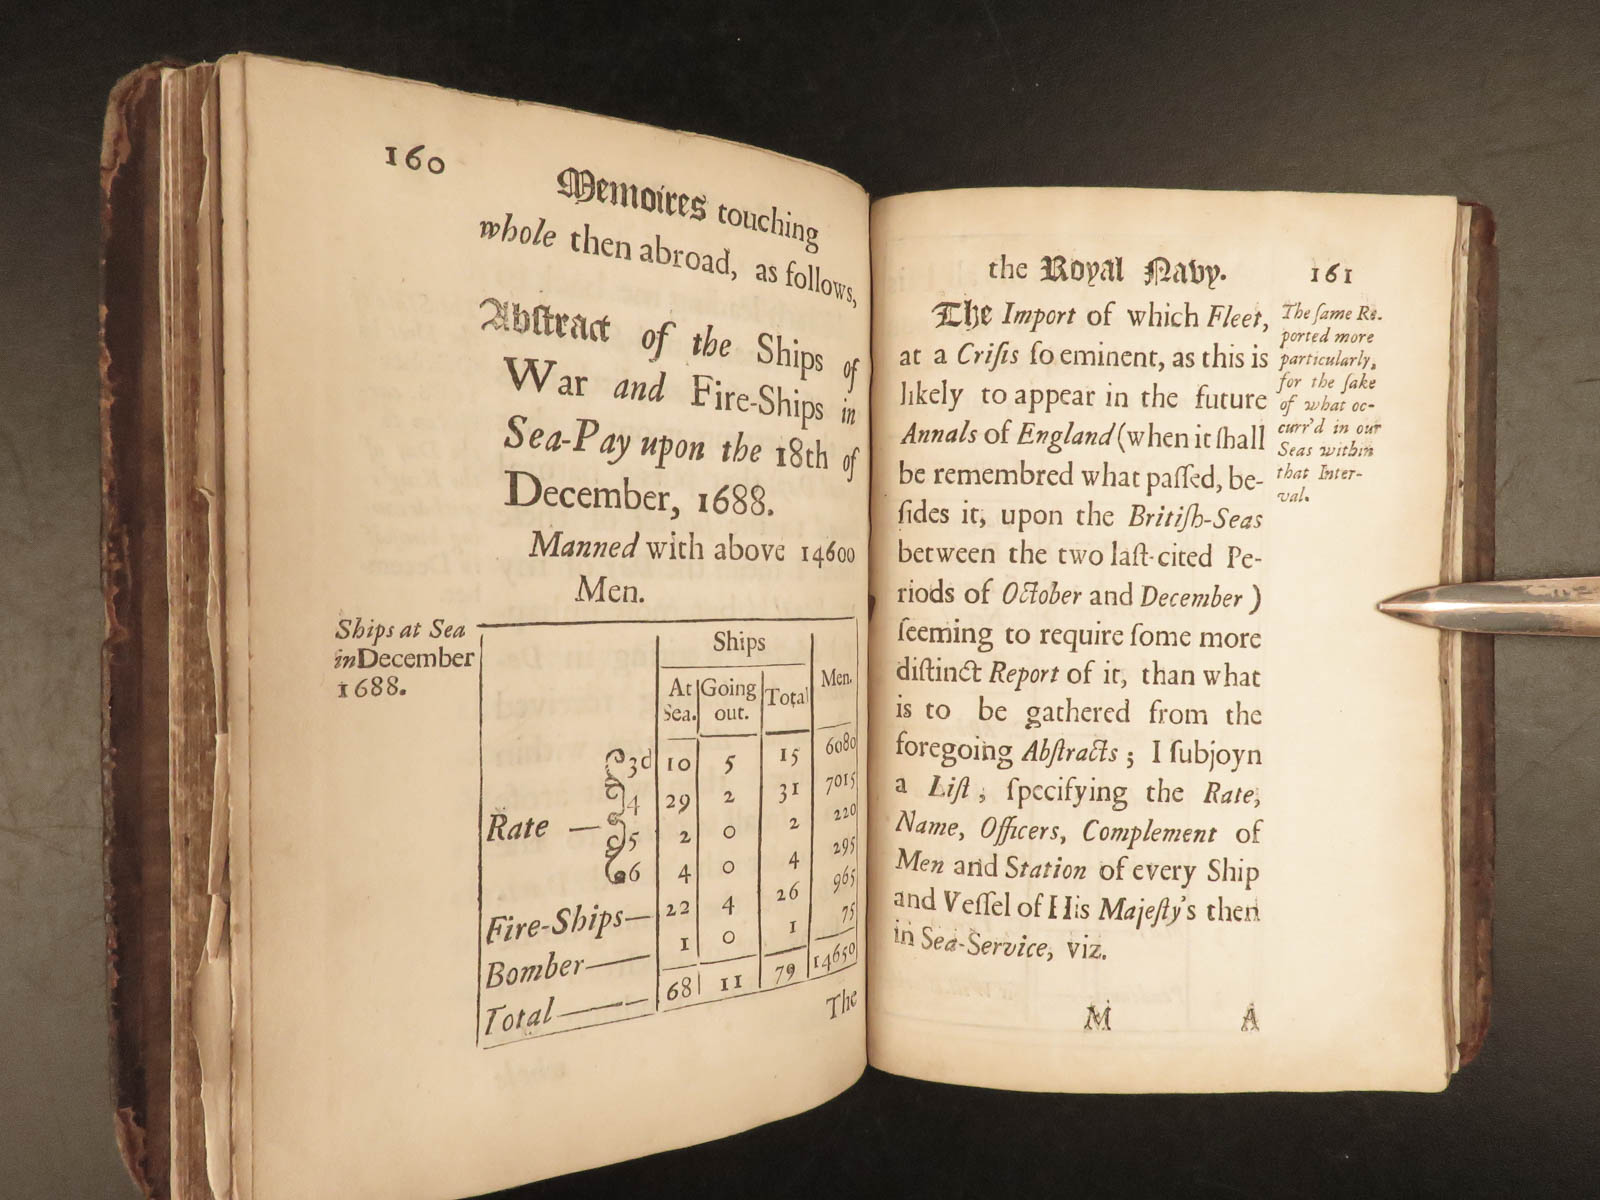 160
Memoires touching
whole then abroad, as follows,
Abſtract of the Ships of
War and Fire-Ships in
Sea-Pay upon the 18th of
December, 1688.
Manned with above 14600
Men.
Ships at Sea
in December
1688.
Ships
Men.
At Sea. Going out. Total
Rate — 3d 10 5 15 6080
4 29 2 31 7015
5 2 0 2 220
6 4 0 4 295
Fire-Ships— 22 4 26 965
Bomber— 1 0 1 75
Total— 68 11 79 14650
The
the Royal Navy. 161
The Import of which Fleet,
at a Criſis ſo eminent, as this is
likely to appear in the future
Annals of England (when it ſhall
be remembred what paſſed, be-
ſides it, upon the Britiſh-Seas
between the two laſt-cited Pe-
riods of October and December)
ſeeming to require ſome more
diſtinct Report of it, than what
is to be gathered from the
foregoing Abſtracts; I ſubjoyn
a Liſt, ſpecifying the Rate,
Name, Officers, Complement of
Men and Station of every Ship
and Veſſel of His Majeſty's then
in Sea-Service, viz.
The ſame Re-
ported more
particularly,
for the ſake
of what oc-
curr'd in our
Seas within
that Inter-
val.
M A